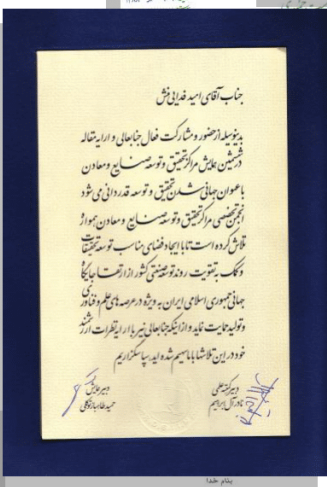 جناب آقای امید فدایی فش
بدینوسیله از حضور و مشارکت فعال جنابعالی و ارایه مقاله
در ششمین همایش مراکز تحقیق و توسعه صنایع و معادن
با عنوان جهانی شدن تحقیق و توسعه قدردانی می شود
انجمن تخصصی مراکز تحقیق و توسعه صنایع و معادن همواره
تلاش کرده است تا با ایجاد فضای مناسب توسعه تحقیقات
و کمک به تقویت روند توسعه صنعتی کشور از ارتقاء جایگاه
جهانی جمهوری اسلامی ایران به ویژه در عرصه های علم و فناوری
و تولید حمایت نماید و از اینکه جنابعالی نیز با ارایه نظرات ارزشمند
خود در این تلاشها با ما سهیم شده اید سپاسگزاریم
دبیر کمیته علمی دبیر همایش
نادر آل ابراهیم حمیدطاهباز توکلی
بنام خدا